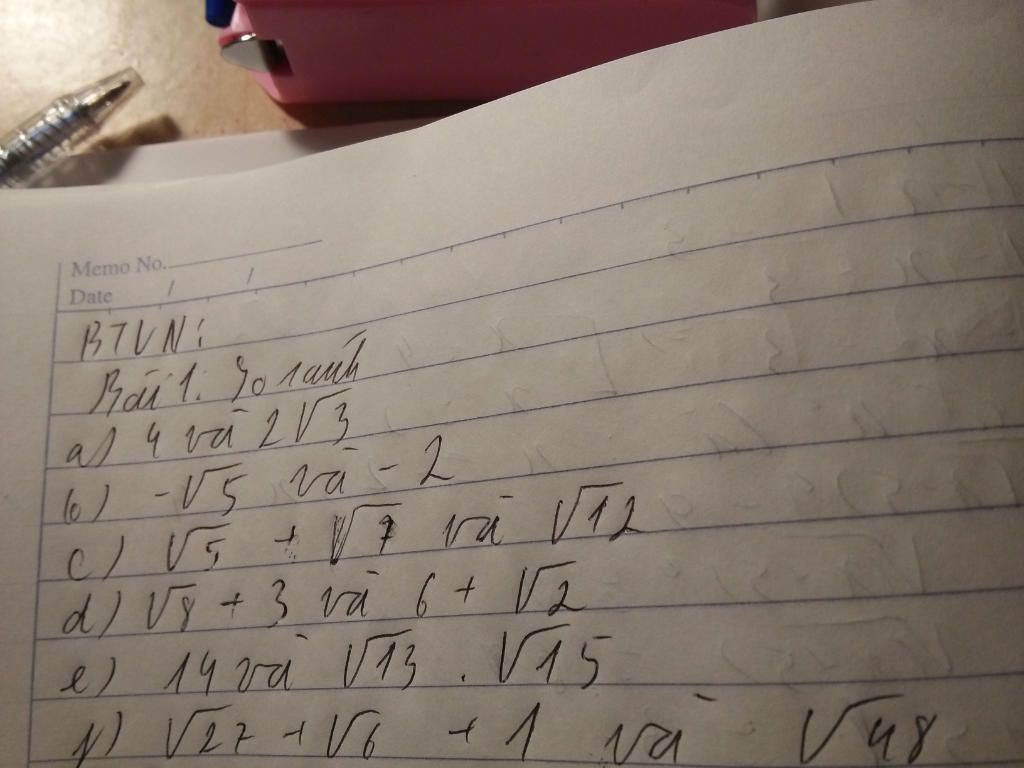 Memo No.
Date / /
BTVN:
Bài 1. So sánh
a) 4 và 2√3
b) -√5 và -2
c) √5 + √7 và √12
d) √8 + 3 và 6 + √2
e) 14 và √13 . √15
f) √27 + √6 + 1 và √48